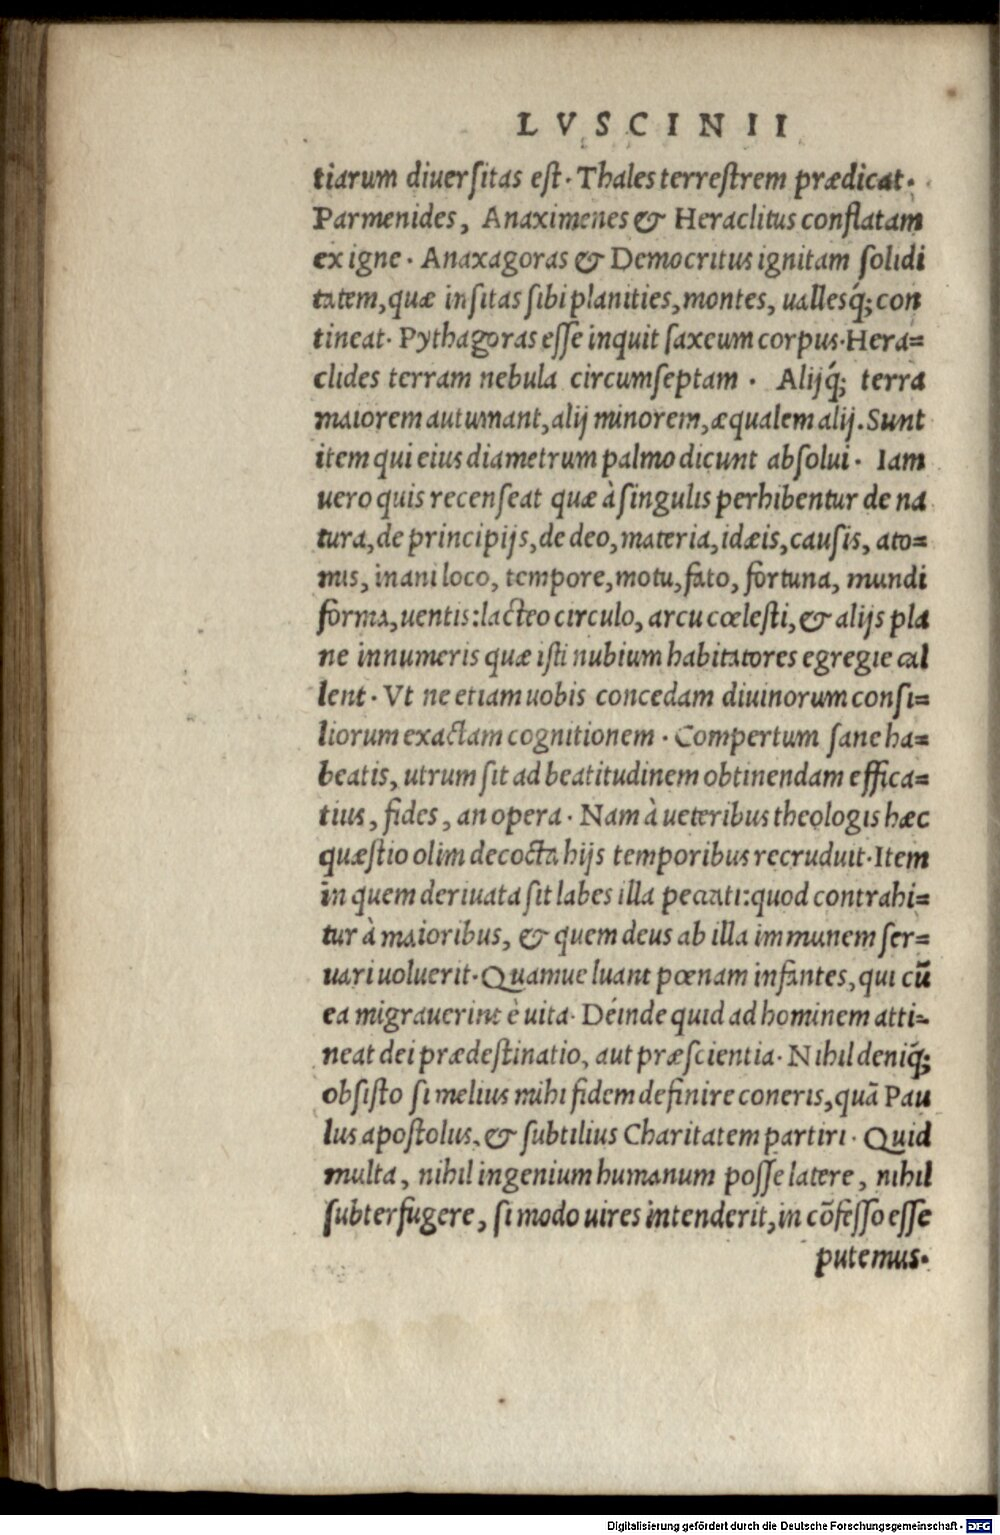 LVSCINII
tiarum diuersitas est. Thales terrestrem prædicat.
Parmenides, Anaximenes & Heraclitus conflatam
ex igne. Anaxagoras & Democritus ignitam solidi
tatem, quæ insitas sibi planities, montes, uallesq́; con
tineat. Pythagoras esse inquit saxeum corpus. Hera=
clides terram nebula circumseptam. Alijq́; terra
maiorem autumant, alij minorem, æqualem alij. Sunt
item qui eius diametrum palmo dicunt absolui. Iam
uero quis recenseat quæ à singulis perhibentur de na
tura, de principijs, de deo, materia, idæis, causis, ato=
mis, inani loco, tempore, motu, fato, fortuna, mundi
forma, uentis: lacteo circulo, arcu cœlesti, & alijs pla
ne innumeris quæ isti nubium habitatores egregie cal
lent. Vt ne etiam uobis concedam diuinorum consi=
liorum exactam cognitionem. Compertum sane ha=
beatis, utrum sit ad beatitudinem obtinendam effica=
tius, fides, an opera. Nam à ueteribus theologis hæc
quæstio olim decocta hijs temporibus recruduit. Item
in quem deriuata sit labes illa peccati: quod contrahi=
tur à maioribus, & quem deus ab illa immunem ser=
uari uoluerit. Quamue luant pœnam infantes, qui cū
ea migrauerint è uita. Déinde quid ad hominem atti=
neat dei prædestinatio, aut præscientia. Nihil deniq́;
obsisto si melius mihi fidem definire coneris, quā Pau
lus apostolus, & subtilius Charitatem partiri. Quid
multa, nihil ingenium humanum posse latere, nihil
subterfugere, si modo uires intenderit, in cōfesso esse
putemus.
Digitalisierung gefördert durch die Deutsche Forschungsgemeinschaft - DFG